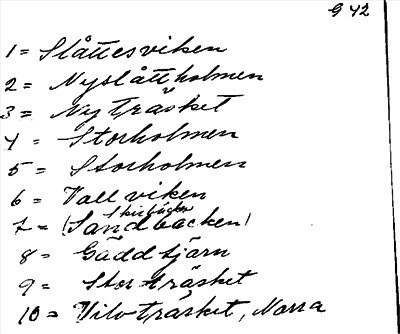 G 42
1 = Slåttesviken
2 = Nyslåttholmen
3 = Nyträsket
4 = Storholmen
5 = Storholmen
6 = Vallviken
7 = (Sandbacken)
8 = Gäddtjärn
9 = Storträsket
10 = träsket, Norra